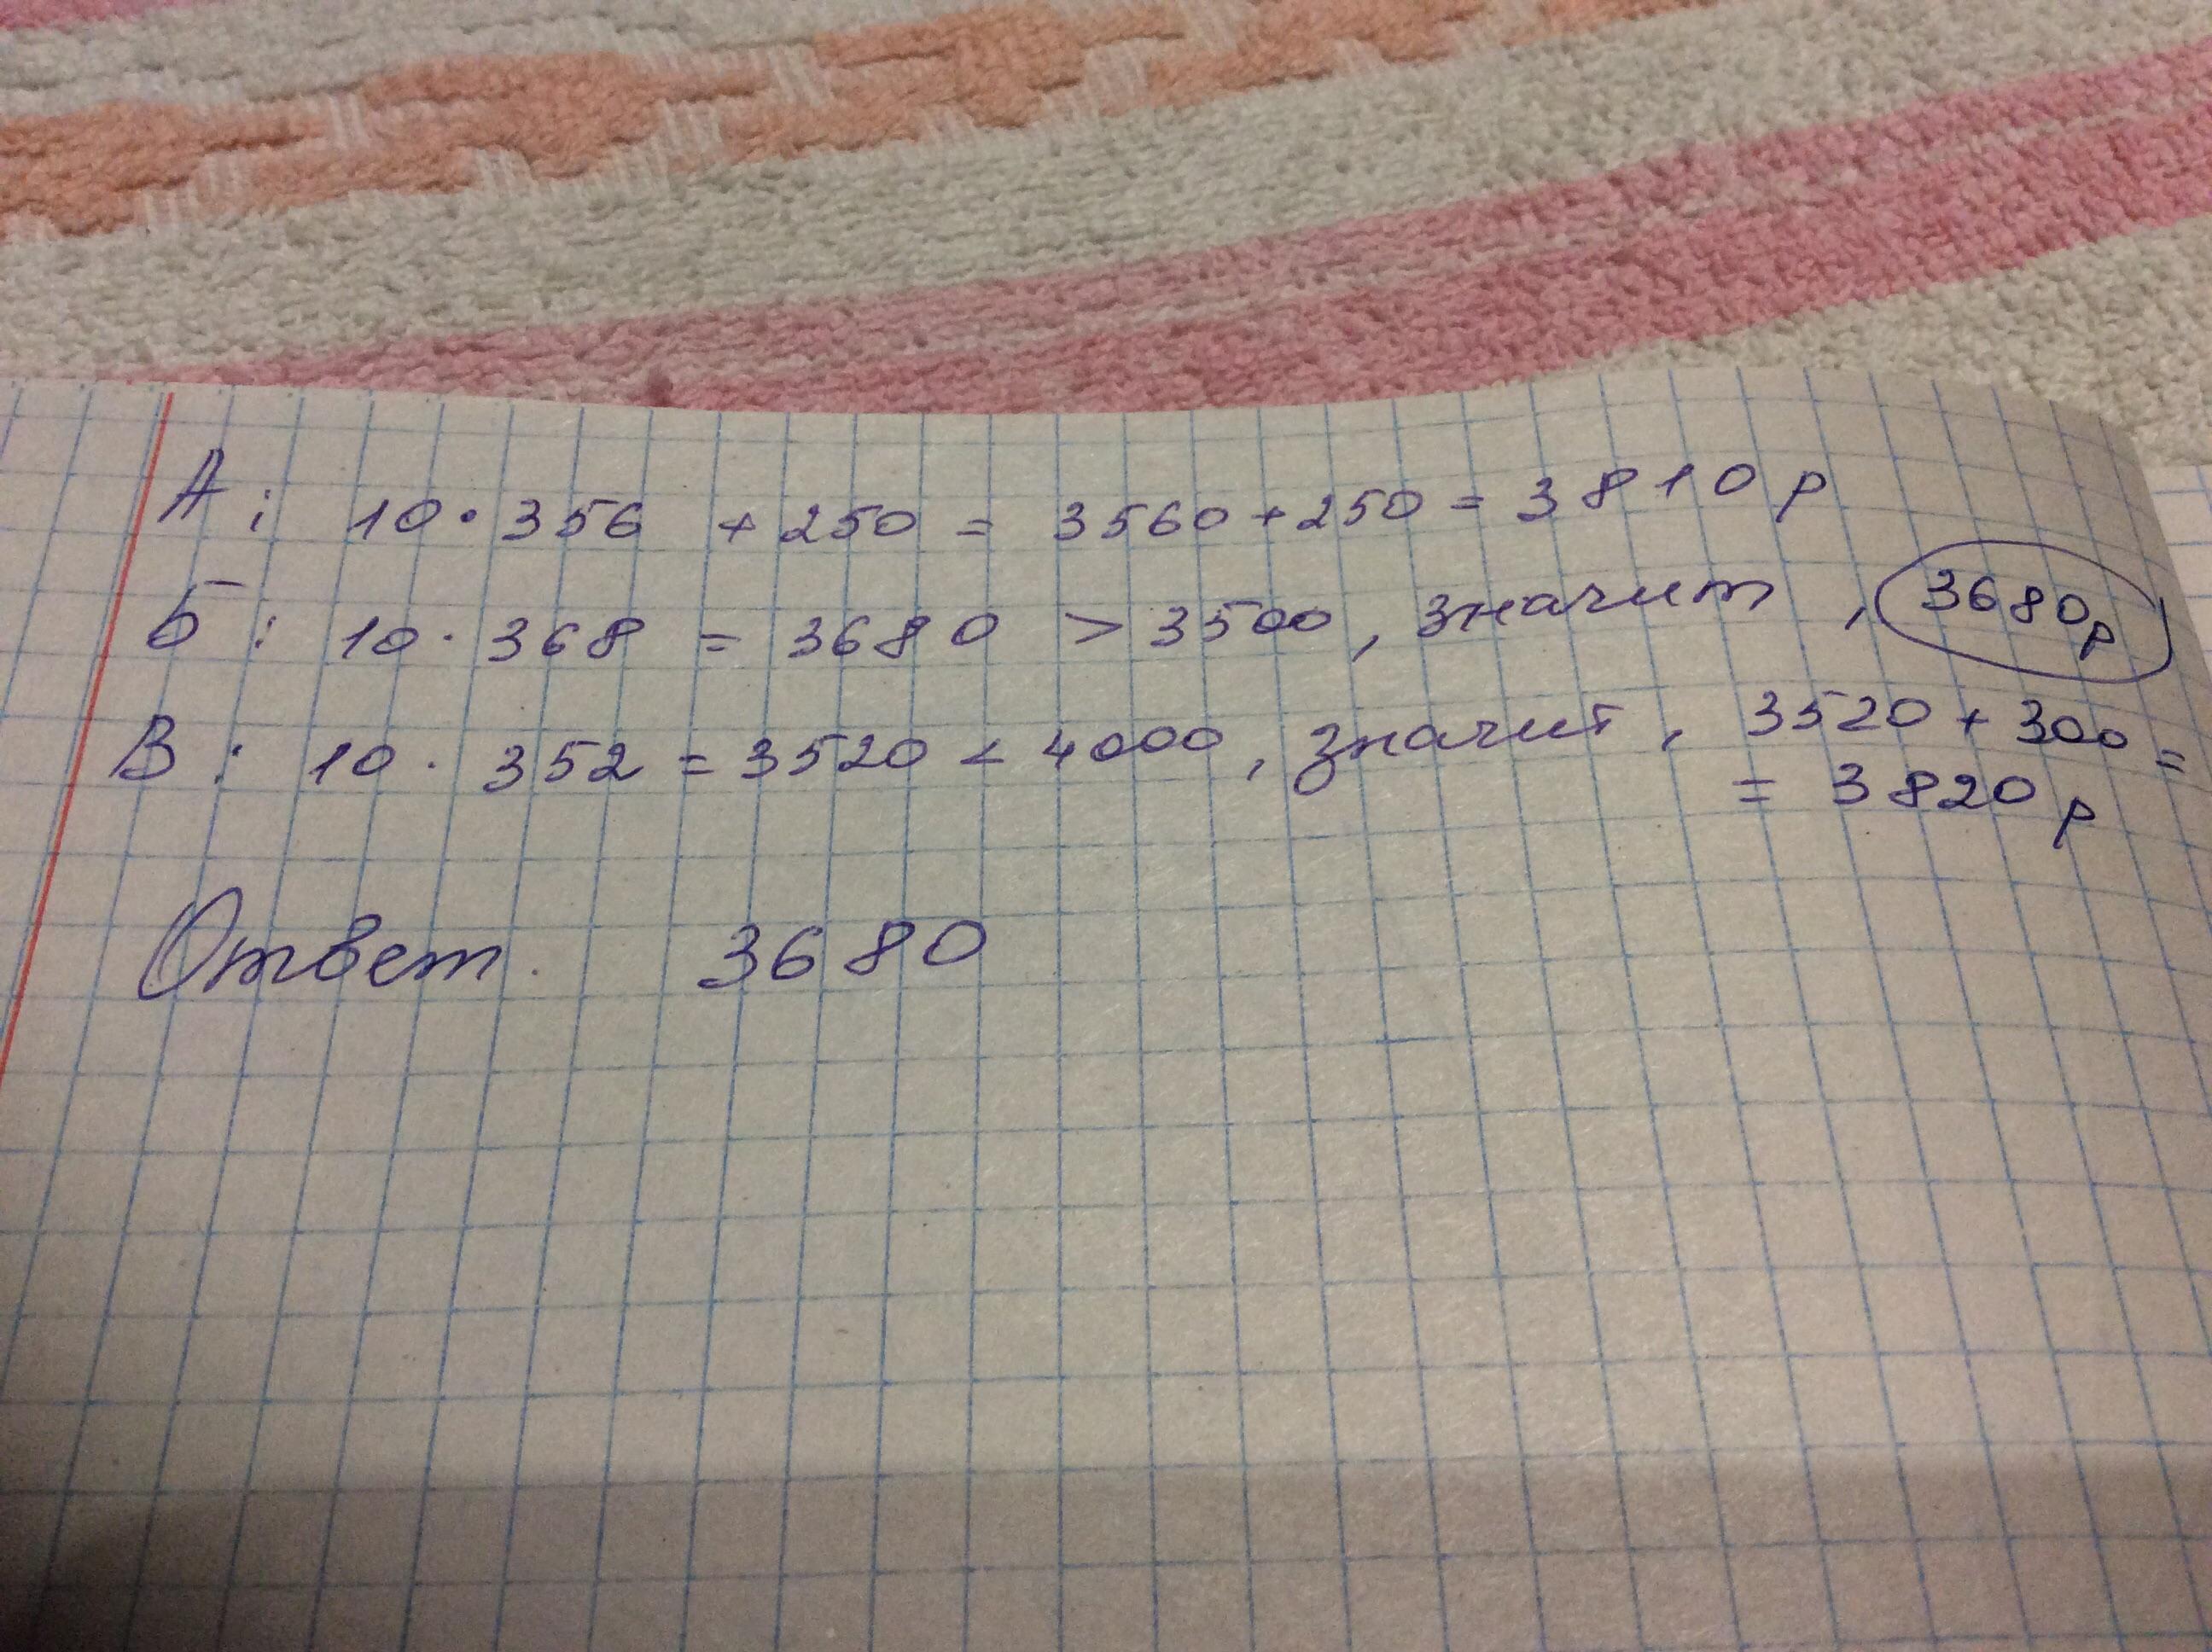 А: 10 · 356 + 250 = 3560 + 250 = 3810 р
Б: 10 · 368 = 3680 > 3500, значит, 3680р
В: 10 · 352 = 3520 < 4000, значит, 3520 + 300 =
= 3820 р
Ответ. 3680